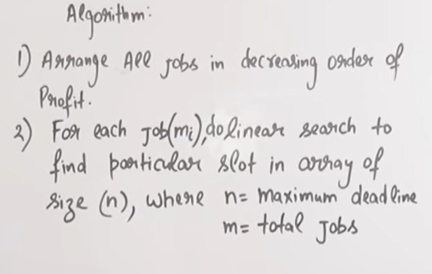 Algorithm:
1) Arrange All jobs in decreasing order of
Profit.
2) For each job(mi), do linear search to
find particular slot in array of
size (n), where n= maximum deadline
m= total jobs